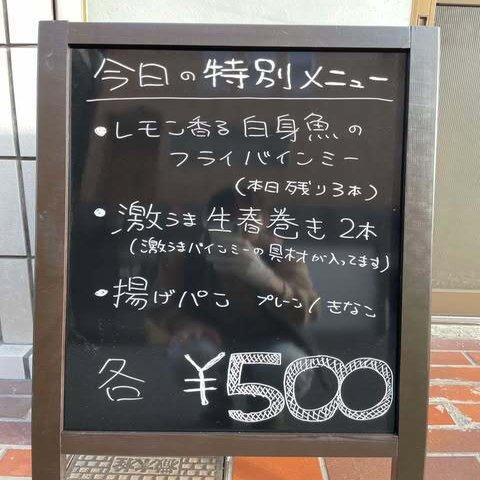 今日の特別メニュー
・レモン香る白身魚の
フライバインミー
(本日残り3本)
・激うま生春巻き2本
(激うまバインミーの具材が入ってます)
・揚げパン プレーン/きなこ
各 ¥500